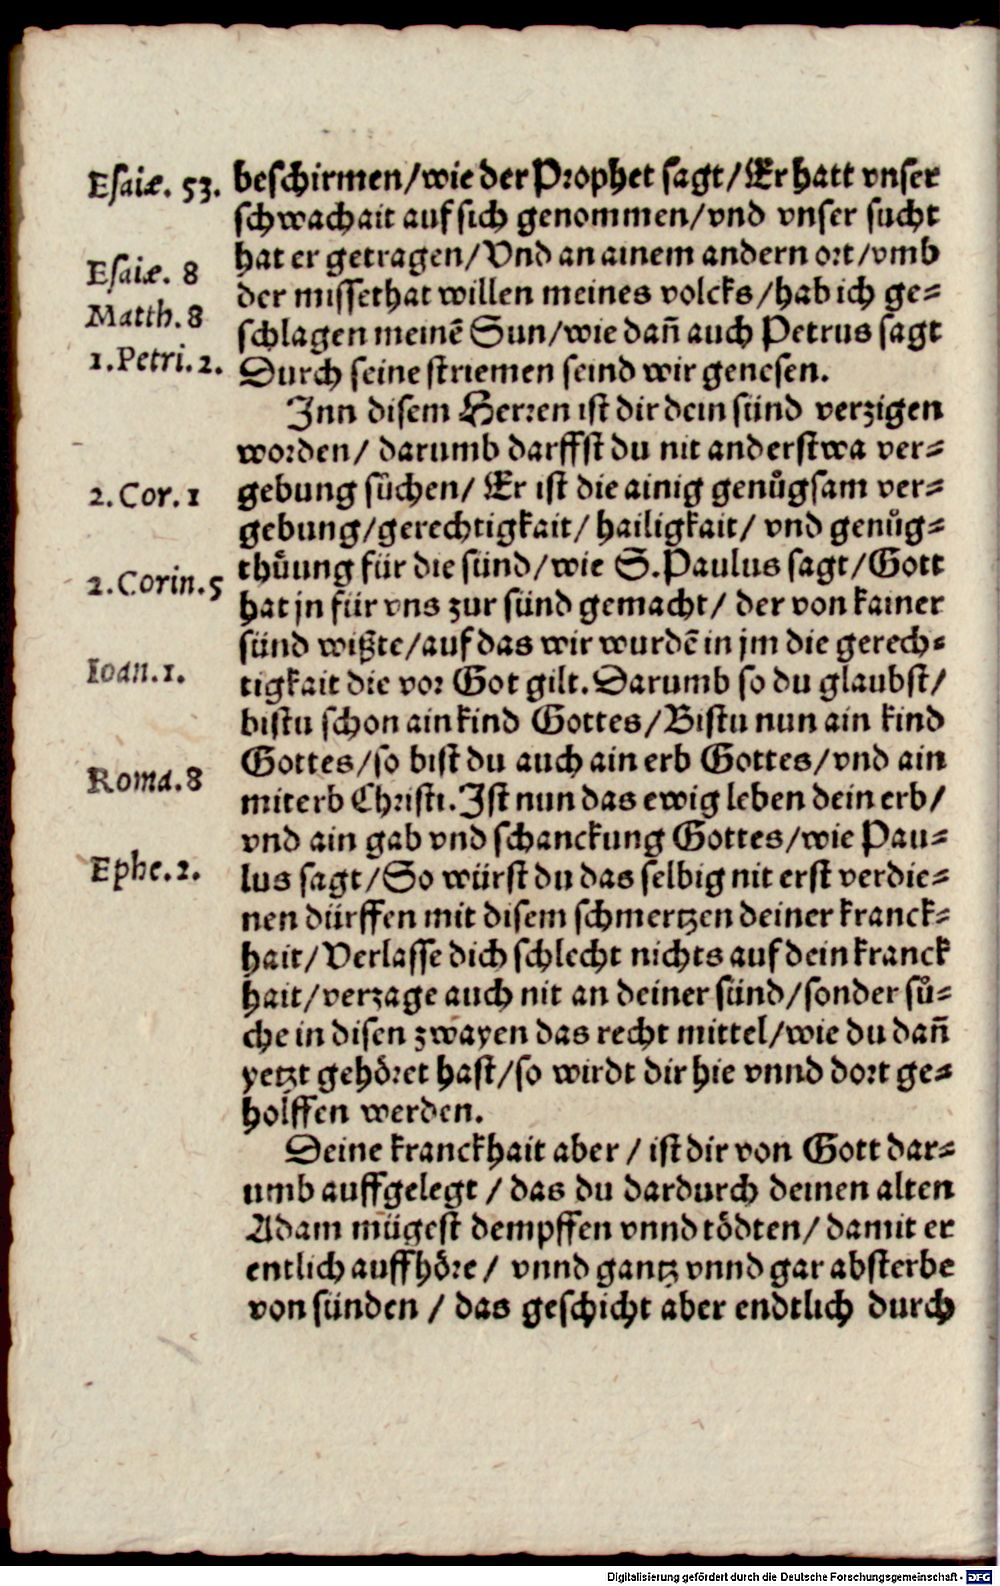 Esaiæ. 53. beschirmen/wie der Prophet sagt/Er hatt vnser
schwachait auf sich genommen/vnd vnser sucht
hat er getragen/Vnd an ainem andern ort/vmb
Esaiæ. 8
der missethat willen meines volcks/hab ich ge=
Matth. 8
schlagen meinē Sun/wie dañ auch Petrus sagt
1. Petri. 2. Durch seine striemen seind wir genesen.
Jnn disem Herren ist dir dein sünd verzigen
worden/ darumb darffst du nit anderstwa ver=
2. Cor. 1 gebung sůchen/ Er ist die ainig genůgsam ver=
gebung/gerechtigkait/ hailigkait/ vnd genůg=
thůung für die sünd/wie S. Paulus sagt/Gott
2. Corin. 5
hat jn für vns zur sünd gemacht/ der von kainer
sünd wißte/auf das wir wurdē in jm die gerech=
Ioan. 1. tigkait die vor Got gilt. Darumb so du glaubst/
bistu schon ain kind Gottes/Bistu nun ain kind
Gottes/so bist du auch ain erb Gottes/vnd ain
Roma. 8
miterb Christi. Jst nun das ewig leben dein erb/
vnd ain gab vnd schanckung Gottes/wie Pau=
Ephe. 2. lus sagt/So würst du das selbig nit erst verdie=
nen dürffen mit disem schmertzen deiner kranck=
hait/Verlasse dich schlecht nichts auf dein kranck
hait/verzage auch nit an deiner sünd/sonder sů=
che in disen zwayen das recht mittel/wie du dañ
yetzt gehöret hast/so wirdt dir hie vnnd dort ge=
holffen werden.
Deine kranckhait aber / ist dir von Gott dar=
umb auffgelegt / das du dardurch deinen alten
Adam mügest dempffen vnnd tödten/ damit er
entlich auffhöre / vnnd gantz vnnd gar absterbe
von sünden / das geschicht aber endtlich durch
Digitalisierung gefördert durch die Deutsche Forschungsgemeinschaft - DFG